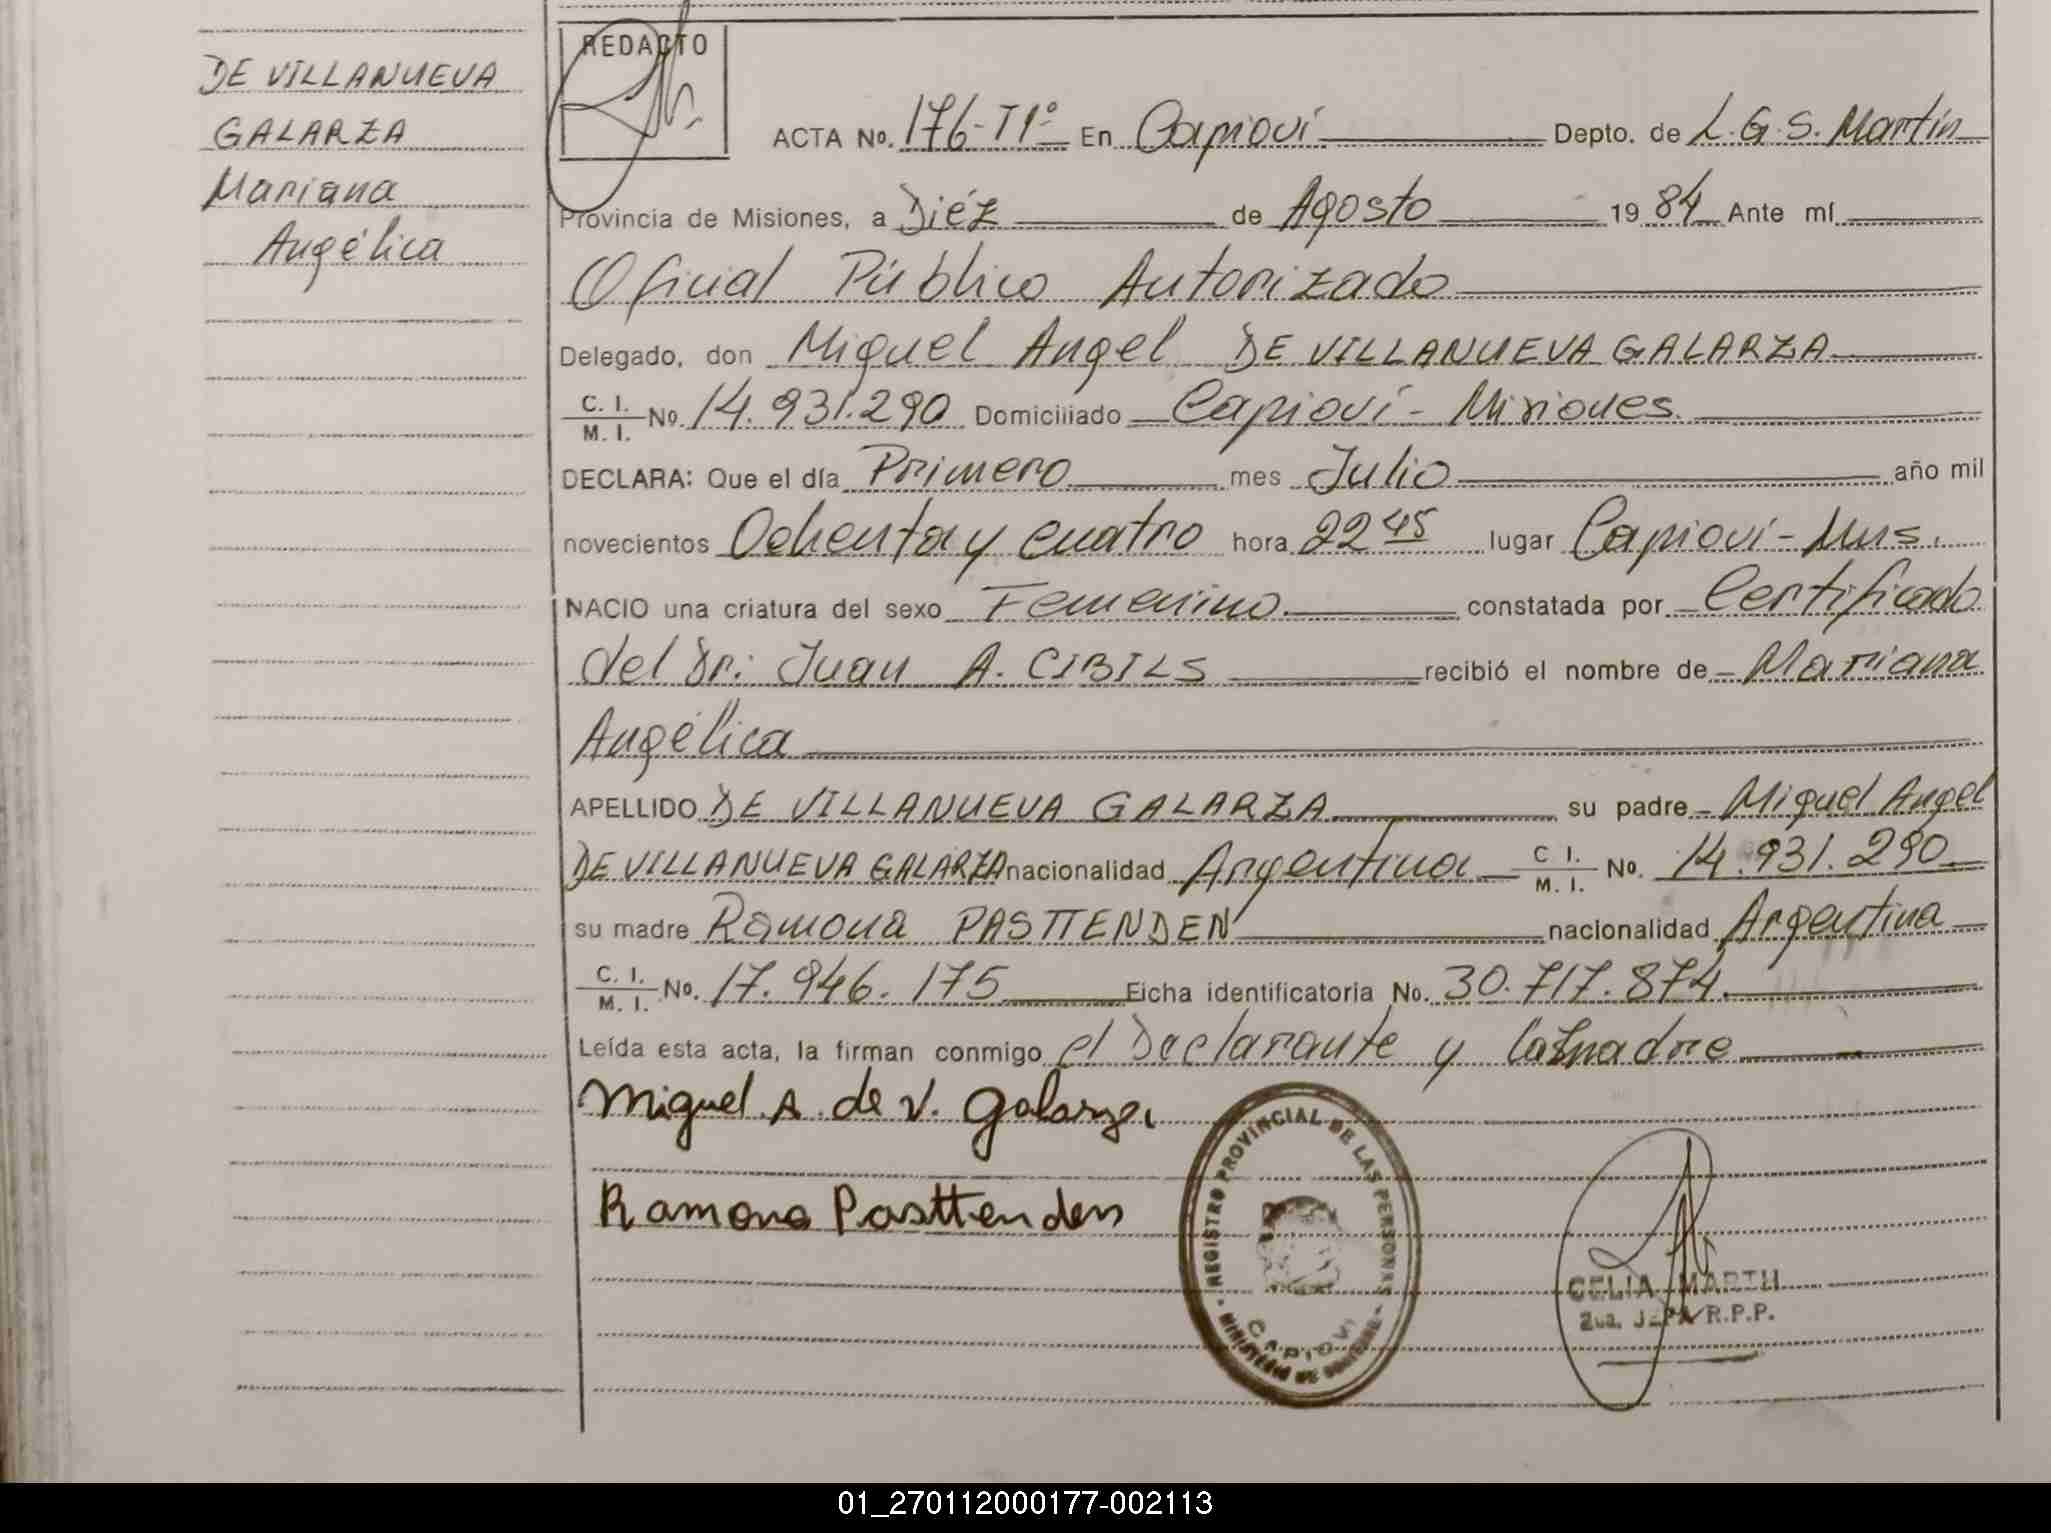 DE VILLANUEVA
GALARZA
Mariana
Angélica
REDACTO
ACTA No. 176-T1º En Capioví Depto. de L.G.S. Martín
Provincia de Misiones, a Diéz de Agosto 19 84 Ante mí
Oficial Público Autorizado
Delegado, don Miguel Angel DE VILLANUEVA GALARZA
C. I. / M. I. No. 14.931.290 Domiciliado Capioví - Misiones.
DECLARA: Que el día Primero mes Julio año mil
novecientos Ochenta y cuatro hora 22 45 lugar Capioví - Mns.
NACIO una criatura del sexo Femenino constatada por Certificado
del Dr: Juan A. CIBILS recibió el nombre de Mariana
Angélica
APELLIDO DE VILLANUEVA GALARZA su padre Miguel Angel
DE VILLANUEVA GALARZA nacionalidad Argentina C. I. / M. I. No. 14.931.290
su madre Ramona PASTTENDEN nacionalidad Argentina
C. I. / M. I. No. 17.946.175 Ficha identificatoria No. 30.717.874.
Leída esta acta, la firman conmigo el Declarante y la madre
Miguel A. de V. Galarza
Ramona Pasttenden
REGISTRO PROVINCIAL DE LAS PERSONAS
MINISTERIO DE GOBIERNO
CAPIOVI
CELIA MARTH
2da. JEFA R.P.P.
01_270112000177-002113